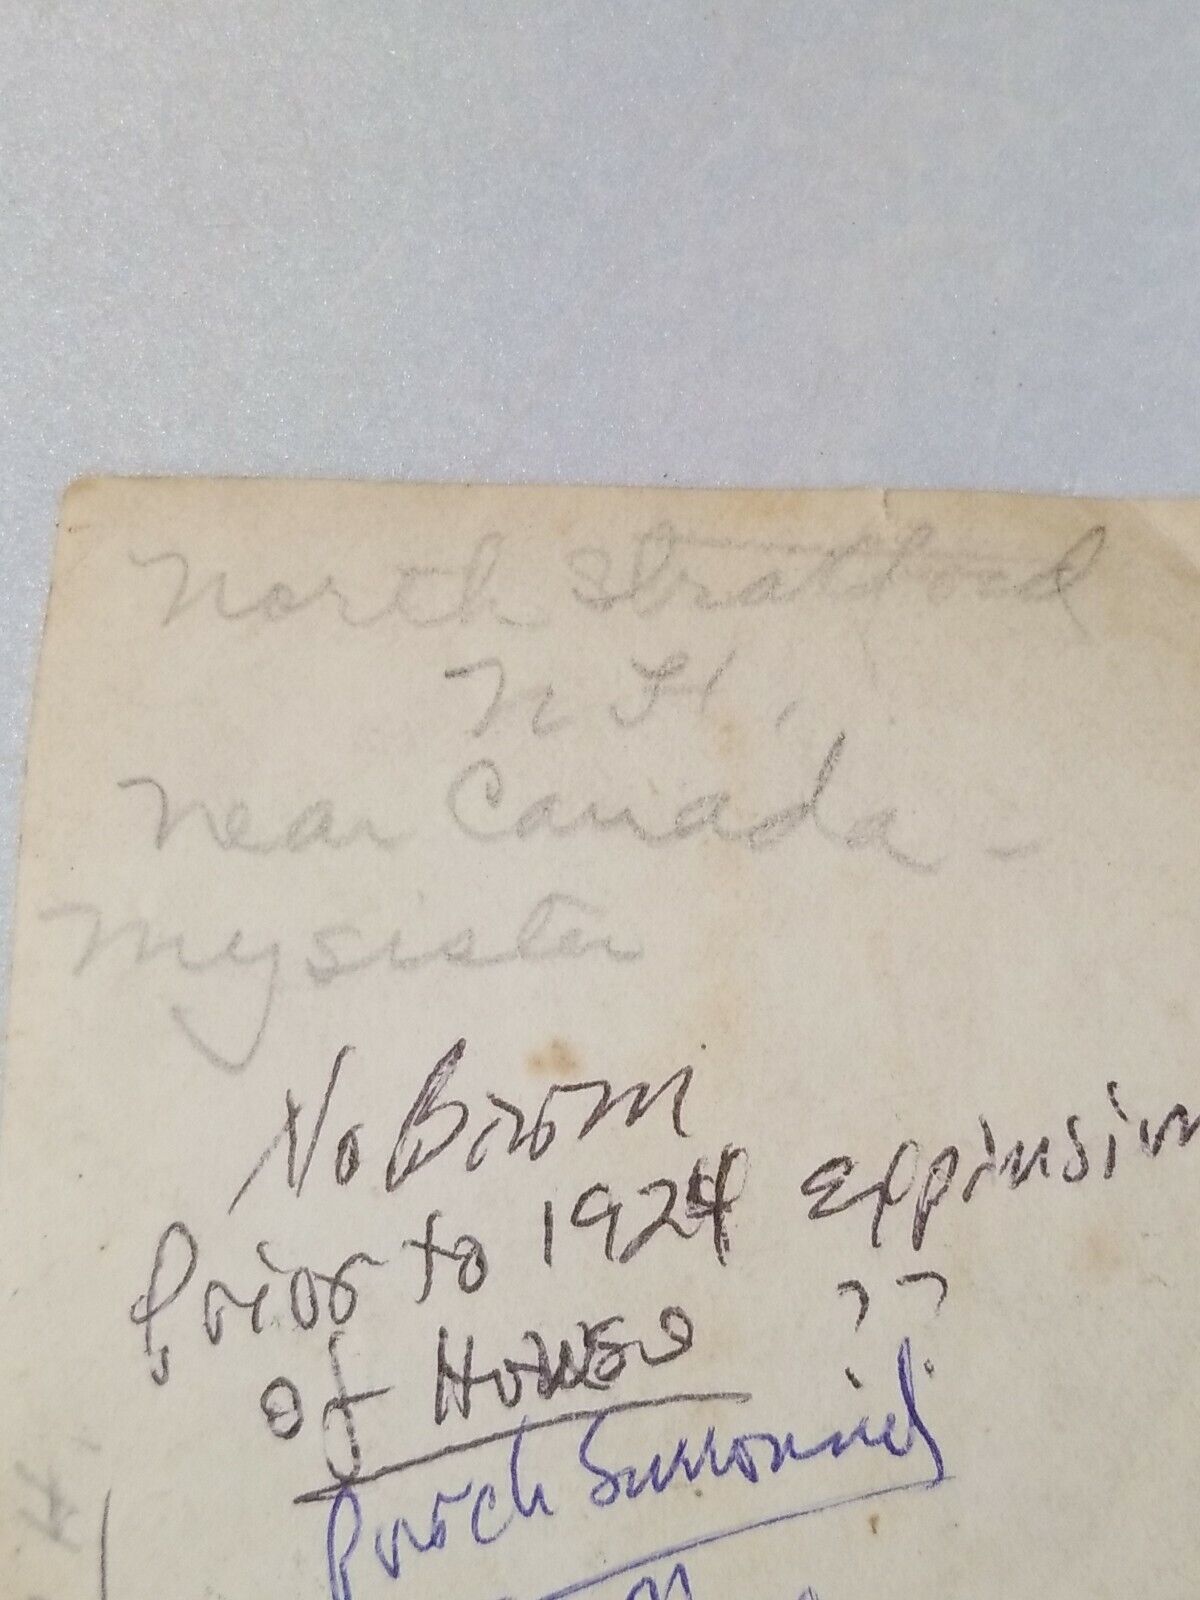 North Stratford
N H,
Near Canada -
My sister
No Barn
Prior to 1924
of House ??
Porch Surround